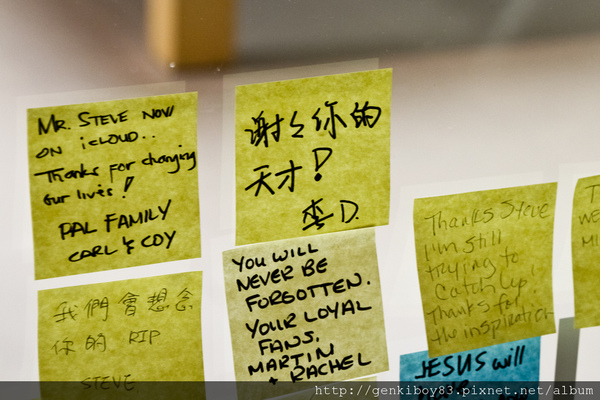 MR. STEVE NOW
ON iCLOUD..
Thanks for changing
our lives!
PAL FAMILY
CARL & COY
谢谢你的
天才!
李 D.
我們會想念
你的 RIP
STEVE
YOU WILL
NEVER BE
FORGOTTEN.
YOUR LOYAL
FANS,
MARTIN
+ RACHEL
Thanks Steve
I'm still
trying to
catch up!
Thanks for
the inspiration
JESUS will
http://genkiboy83.pixnet.net/album